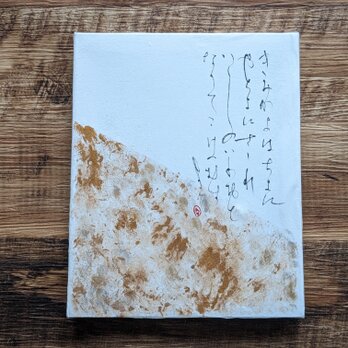 きみかよはちよに
やちよにさゝれ
いしのいはほと
なりてこけのむす